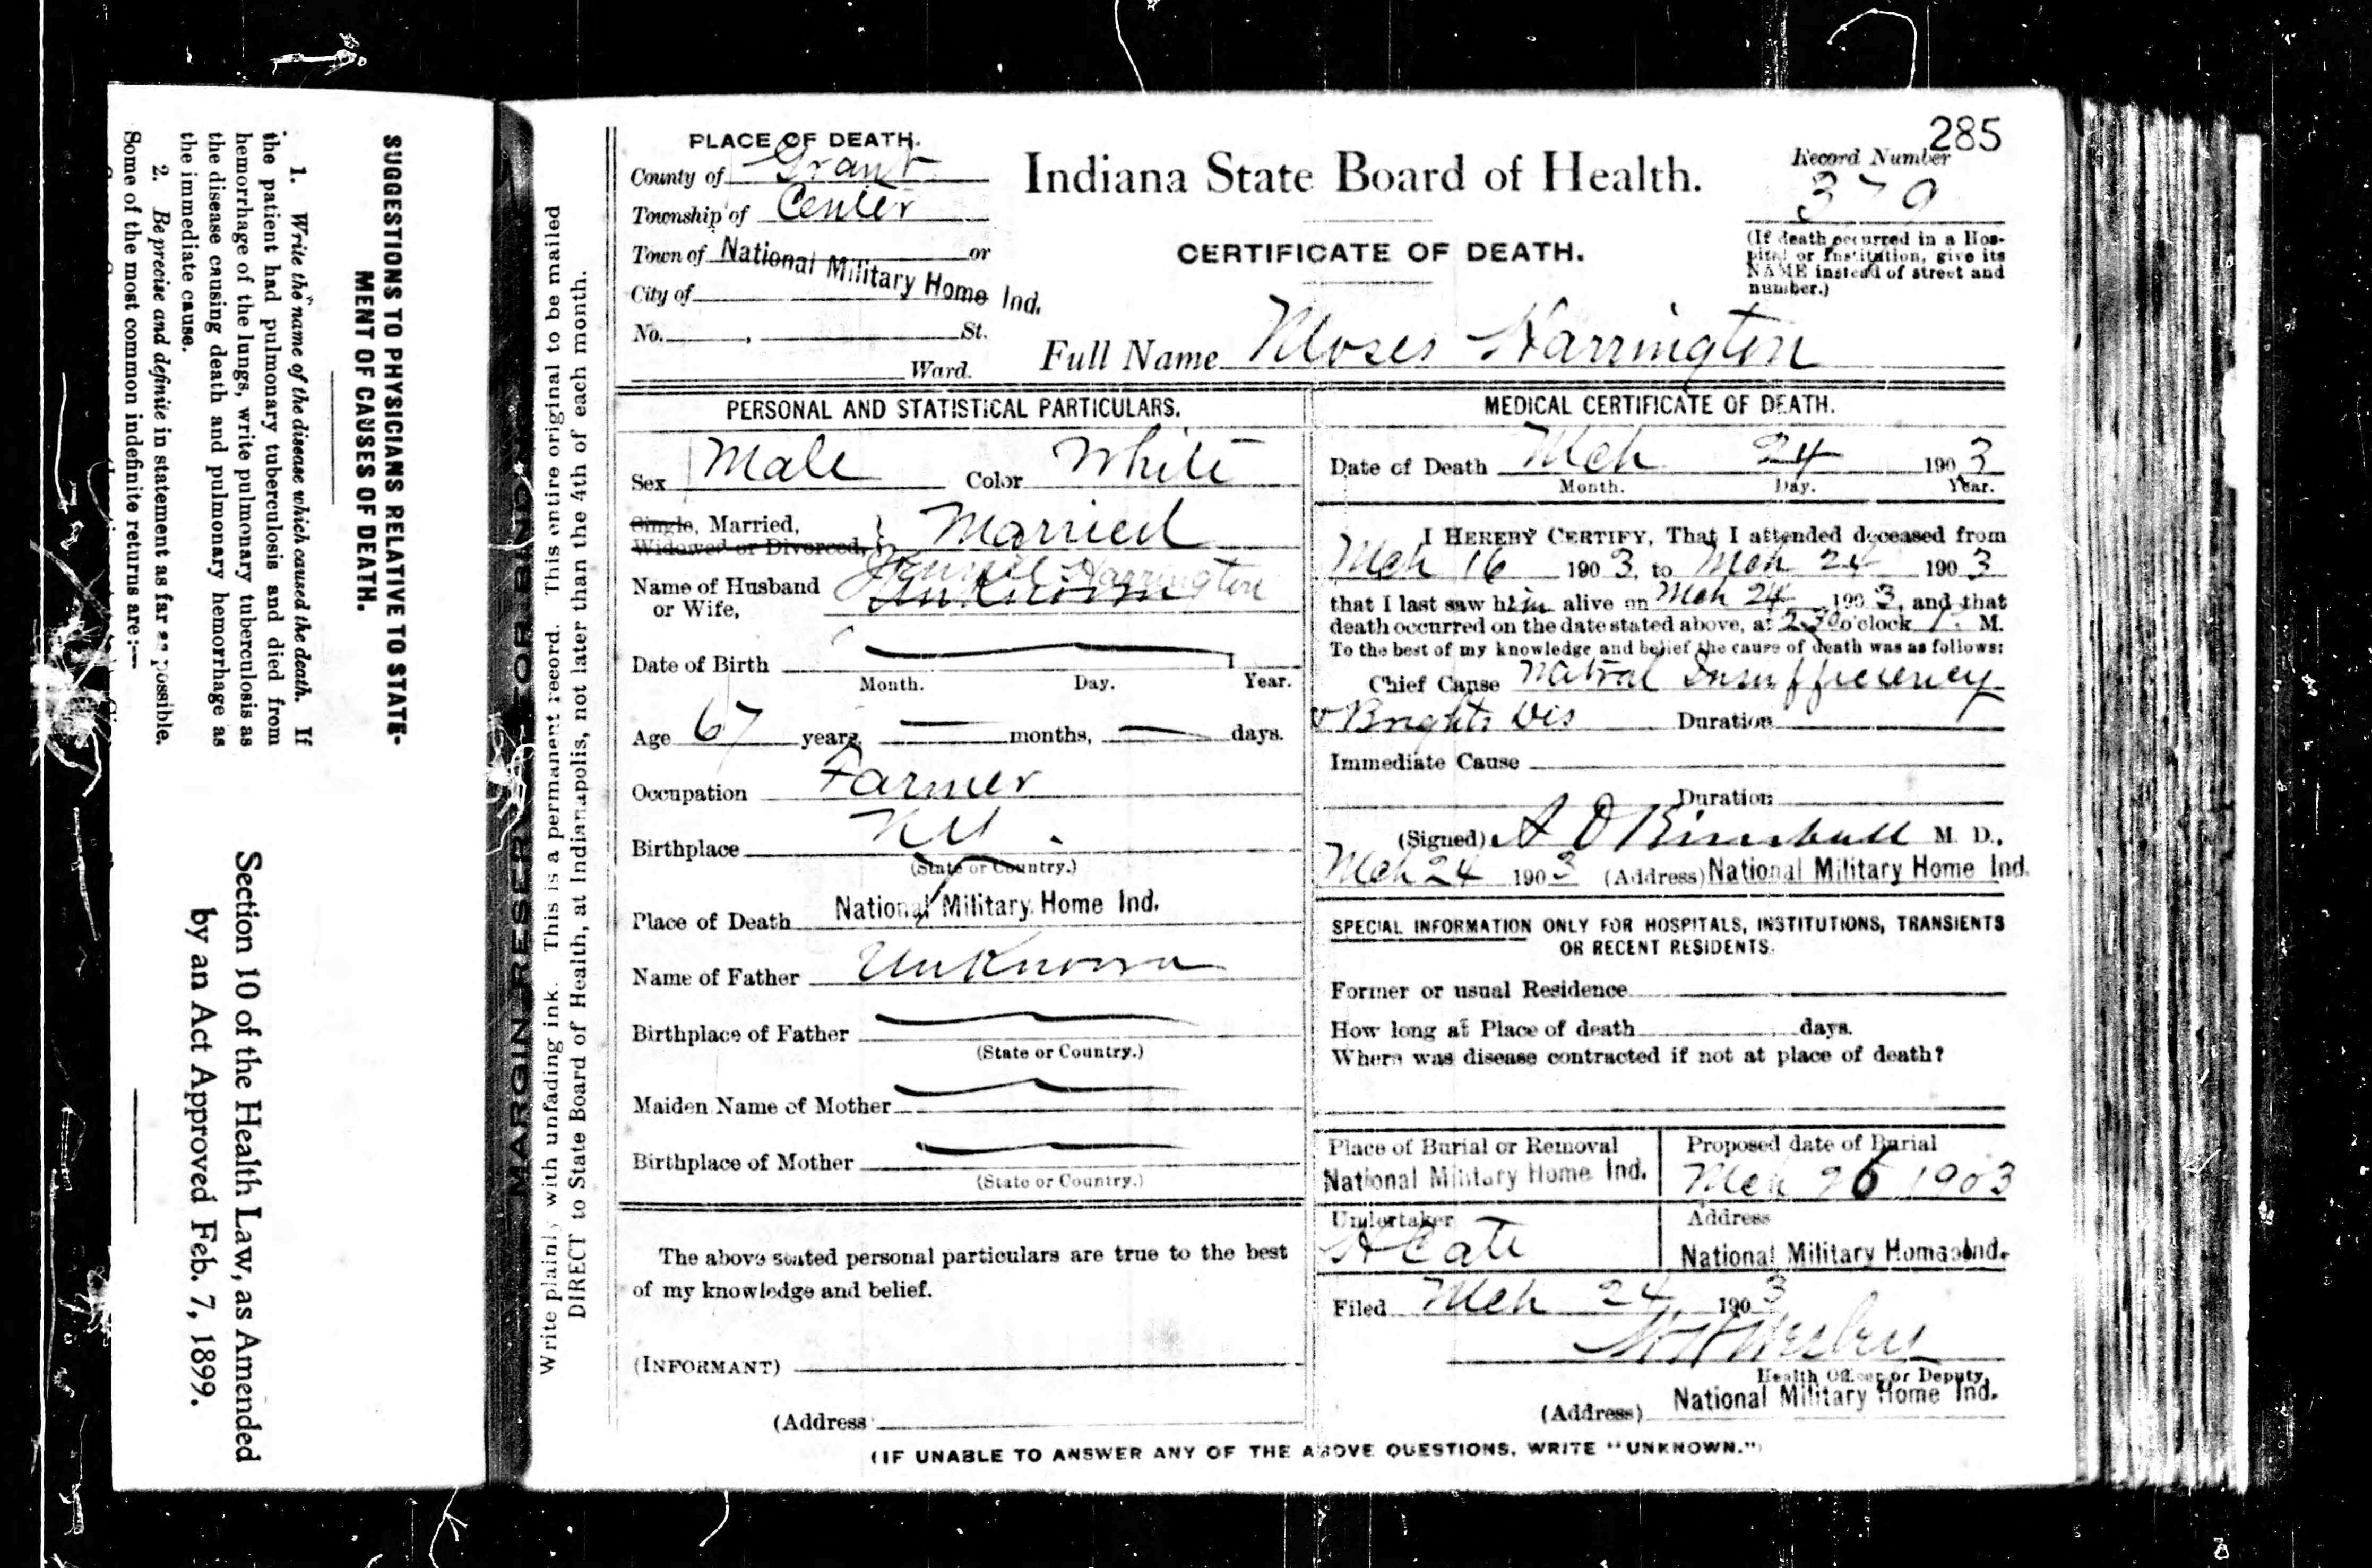 SUGGESTIONS TO PHYSICIANS RELATIVE TO STATE-
MENT OF CAUSES OF DEATH.
1. Write the name of the disease which caused the death. If
the patient had pulmonary tuberculosis and died from
hemorrhage of the lungs, write pulmonary tuberculosis as
the disease causing death and pulmonary hemorrhage as
the immediate cause.
2. Be precise and definite in statement as far as possible.
Some of the most common indefinite returns are:—
Section 10 of the Health Law, as Amended
by an Act Approved Feb. 7, 1899.
MARGIN RESER FOR BIND
Write plainly with unfading ink. This is a permanent record. This entire original to be mailed
DIRECT to State Board of Health, at Indianapolis, not later than the 4th of each month.
285
PLACE OF DEATH.
County of Grant
Township of Center
Town of National Military Home Ind. or
City of
No. , St.
Ward.
Indiana State Board of Health.
CERTIFICATE OF DEATH.
Record Number
370
(If death occurred in a Hos-
pital or Institution, give its
NAME instead of street and
number.)
Full Name Moses Harrington
PERSONAL AND STATISTICAL PARTICULARS.
Sex Male Color White
Single, Married,
Widowed or Divorced, } Married
Name of Husband
or Wife, Harrington
Unknown
Date of Birth
Month. Day. Year.
Age 67 years, — months, — days.
Occupation Farmer
Birthplace NY
(State or Country.)
Place of Death National Military Home Ind.
Name of Father Unknown
Birthplace of Father
(State or Country.)
Maiden Name of Mother
Birthplace of Mother
(State or Country.)
The above stated personal particulars are true to the best
of my knowledge and belief.
(INFORMANT)
(Address
MEDICAL CERTIFICATE OF DEATH.
Date of Death Mch 24 1903
Month. Day. Year.
I HEREBY CERTIFY, That I attended deceased from
Mch 16 1903, to Mch 24 1903
that I last saw him alive on Mch 24 1903, and that
death occurred on the date stated above, at 2 30 o'clock P. M.
To the best of my knowledge and belief the cause of death was as follows:
Chief Cause Mitral Insufficiency
& Brights Dis Duration
Immediate Cause
Duration
(Signed) A D Kimball M. D.,
Mch 24 1903 (Address) National Military Home Ind.
SPECIAL INFORMATION ONLY FOR HOSPITALS, INSTITUTIONS, TRANSIENTS
OR RECENT RESIDENTS.
Former or usual Residence
How long at Place of death days.
Where was disease contracted if not at place of death?
Place of Burial or Removal
National Military Home Ind.
Proposed date of Burial
Mch 26 1903
Undertaker
H Cate
Address
National Military Home Ind.
Filed Mch 24, 1903
Health Officer or Deputy.
(Address) National Military Home Ind.
(IF UNABLE TO ANSWER ANY OF THE ABOVE QUESTIONS, WRITE "UNKNOWN.")